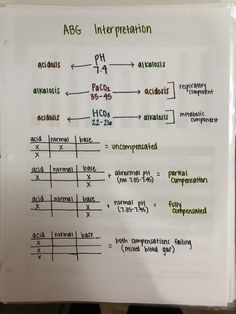 ABG Interpretation
acidosis ← PH 7.4 → alkalosis
alkalosis ← PaCO2 35-45 → acidosis ] respiratory component
acidosis ← HCO3 22-26 → alkalosis ] metabolic component
acid | normal | base
X | X | = uncompensated
acid | normal | base
X
X + abnormal pH (not 7.35-7.45) = partial compensation
acid | normal | base
X
X + normal pH (7.35-7.45) = fully compensated
acid | normal | base
X
X = both compensations failing (mixed blood gas)